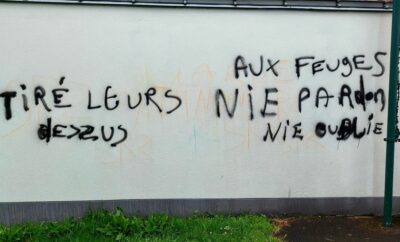 TiRÉ LEURS
dEZZUS
AUX FEUgES
NiE PARdon
NiE OUBLiE